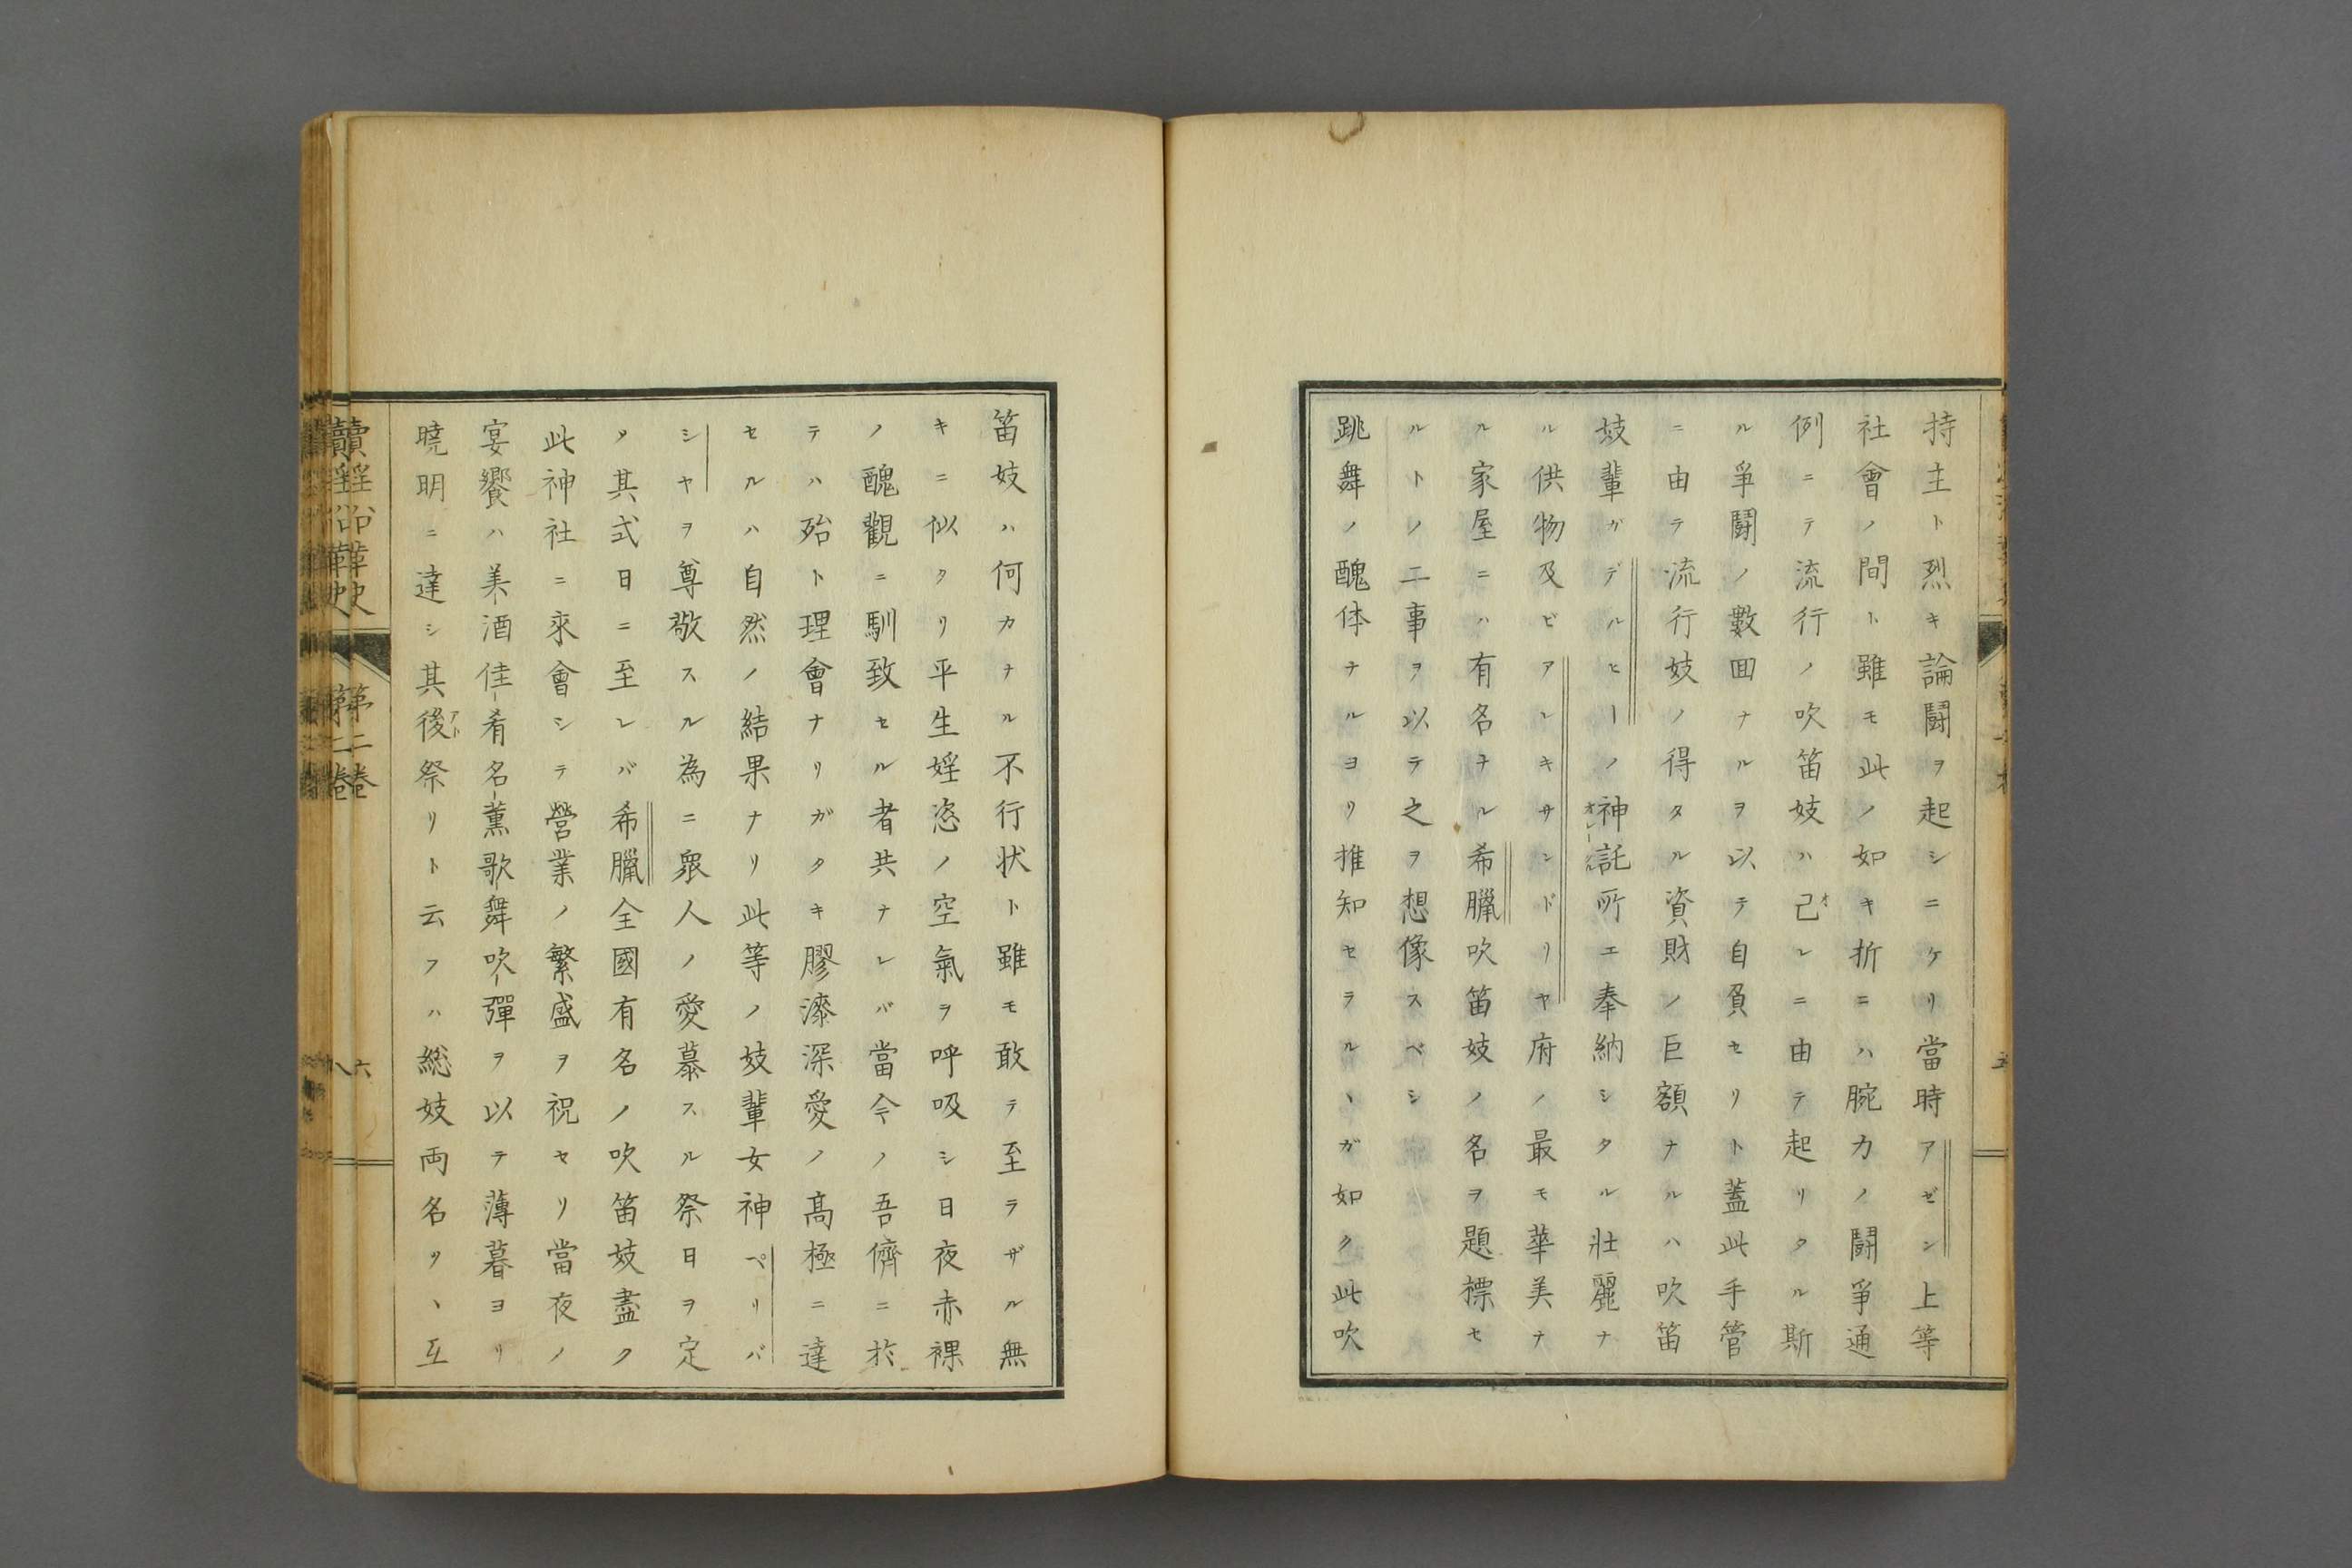 持主ト烈キ論闘ヲ起シニケリ當時アゼン上等
社會ノ間ト雖モ此ノ如キ折ニハ腕力ノ闘爭通
例ニテ流行ノ吹笛妓ハ己レニ由テ起リタル斯
ル爭闘ノ數回ナルヲ以テ自負セリト蓋此手管
ニ由テ流行妓ノ得タル資財ノ巨額ナルハ吹笛
妓輩ガデルヒーノ神託所エ奉納シタル壮麗ナ
ル供物及ビアレキサンドリヤ府ノ最モ華美ナ
ル家屋ニハ有名ナル希臘吹笛妓ノ名ヲ題標セ
ルトノ二事ヲ以テ之ヲ想像スベシ
跳舞ノ醜体ナルヨリ推知セラルヽガ如ク此吹
笛妓ハ何カナル不行状ト雖モ敢テ至ラザル無
キニ似タリ平生婬恣ノ空氣ヲ呼吸シ日夜赤裸
ノ醜觀ニ馴致セル者共ナレバ當今ノ吾儕ニ於
テハ殆ト理會ナリガタキ膠漆深愛ノ髙極ニ達
セルハ自然ノ結果ナリ此等ノ妓輩女神ペリバ
シヤヲ尊敬スル為ニ衆人ノ愛慕スル祭日ヲ定
メ其式日ニ至レバ希臘全國有名ノ吹笛妓盡ク
此神社ニ來會シテ營業ノ繁盛ヲ祝セリ當夜ノ
宴饗ハ美酒佳肴名薫歌舞吹彈ヲ以テ薄暮ヨリ
曉明ニ達シ其後祭リト云フハ総妓両名ツヽ互
贖淫俗韓史
第二巻
六
八